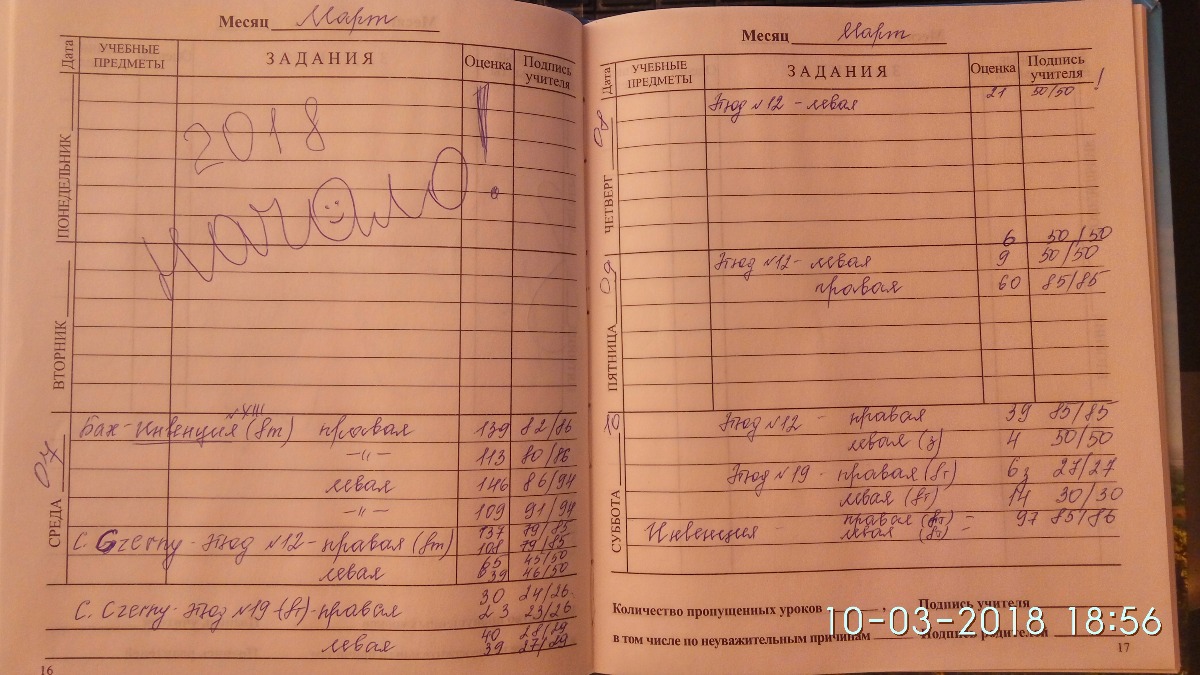 Месяц Март
Дата
УЧЕБНЫЕ ПРЕДМЕТЫ
ЗАДАНИЯ
Оценка
Подпись учителя
ПОНЕДЕЛЬНИК
2018
Начало!
ВТОРНИК
СРЕДА 07
Бах - Инвенция №XIII (8т) правая 139 82/86
-"- 113 80/86
левая 146 86/94
-"- 109 91/94
137 79/85
C. Czerny - Этюд №12 - правая (8т) 108 79/85
65 45/50
левая 39 46/50
30 24/26
C. Czerny - Этюд №19 (8т) - правая 23 23/26
40 28/29
левая 39 27/29
16
Месяц Март
Дата
УЧЕБНЫЕ ПРЕДМЕТЫ
ЗАДАНИЯ
Оценка
Подпись учителя
ЧЕТВЕРГ 08
Этюд №12 - левая 21 50/50 !
6 50/50
ПЯТНИЦА 09
Этюд №12 - левая 9 50/50
правая 60 85/85
СУББОТА 10
Этюд №12 - правая 39 85/85
левая (з) 4 50/50
Этюд №19 - правая (8т) 6з 27/27
левая (8т) 14 30/30
Инвенция - правая (8т) = 97 85/86
левая (8т)
Количество пропущенных уроков , Подпись учителя
в том числе по неуважительным причинам Подпись родителей
17
10-03-2018 18:56